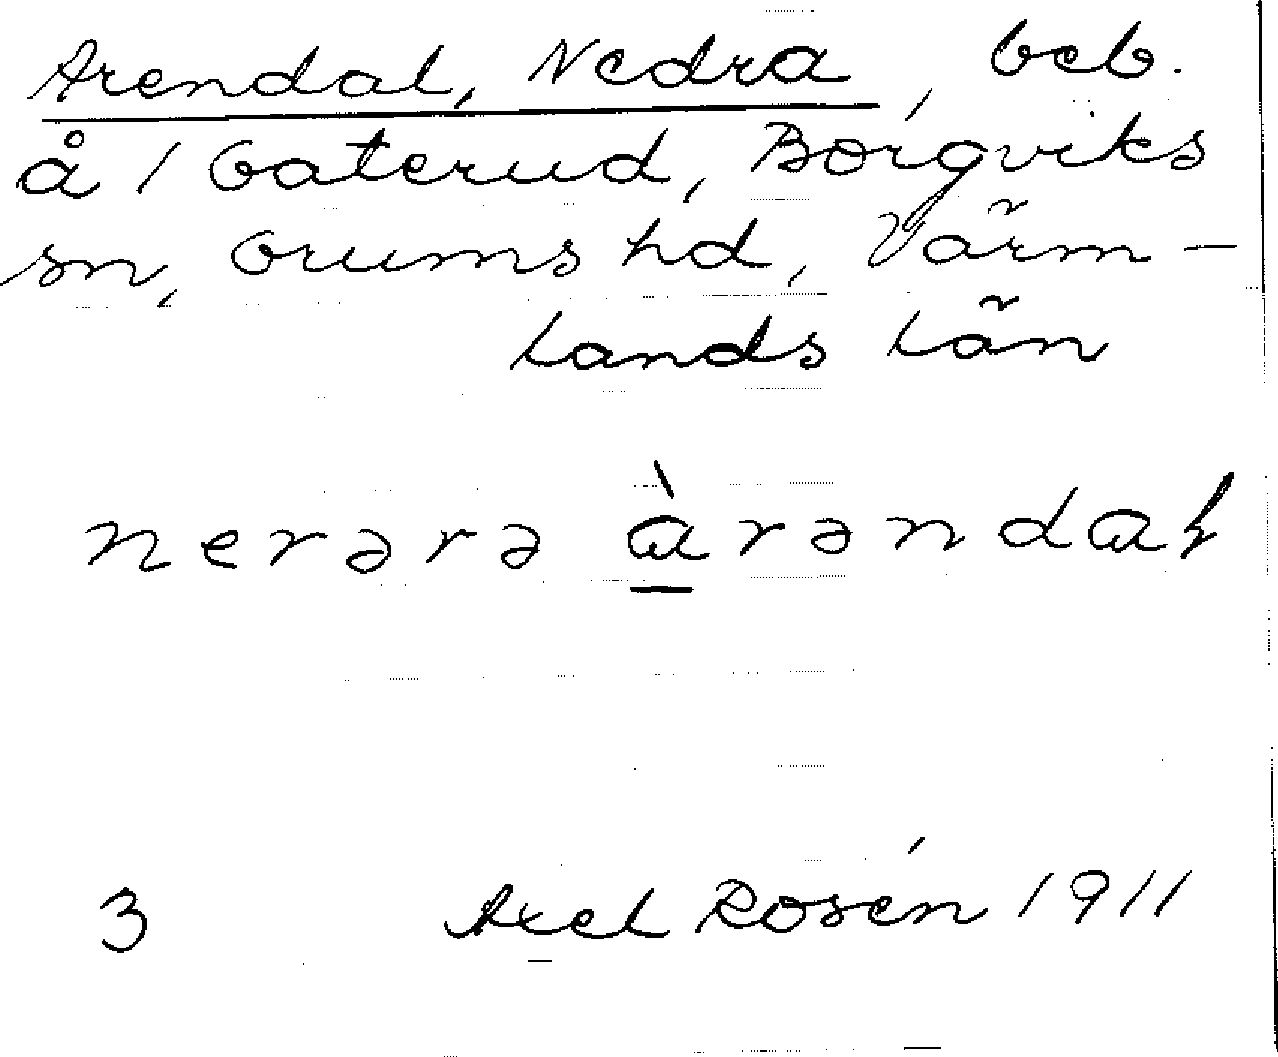 Arendal, Nedra, beb.
å 1 Gaterud, Borgviks
sn, Grums hd, Värm-
lands län
nerərə àrəndaɫ
3 Axel Rosén 1911